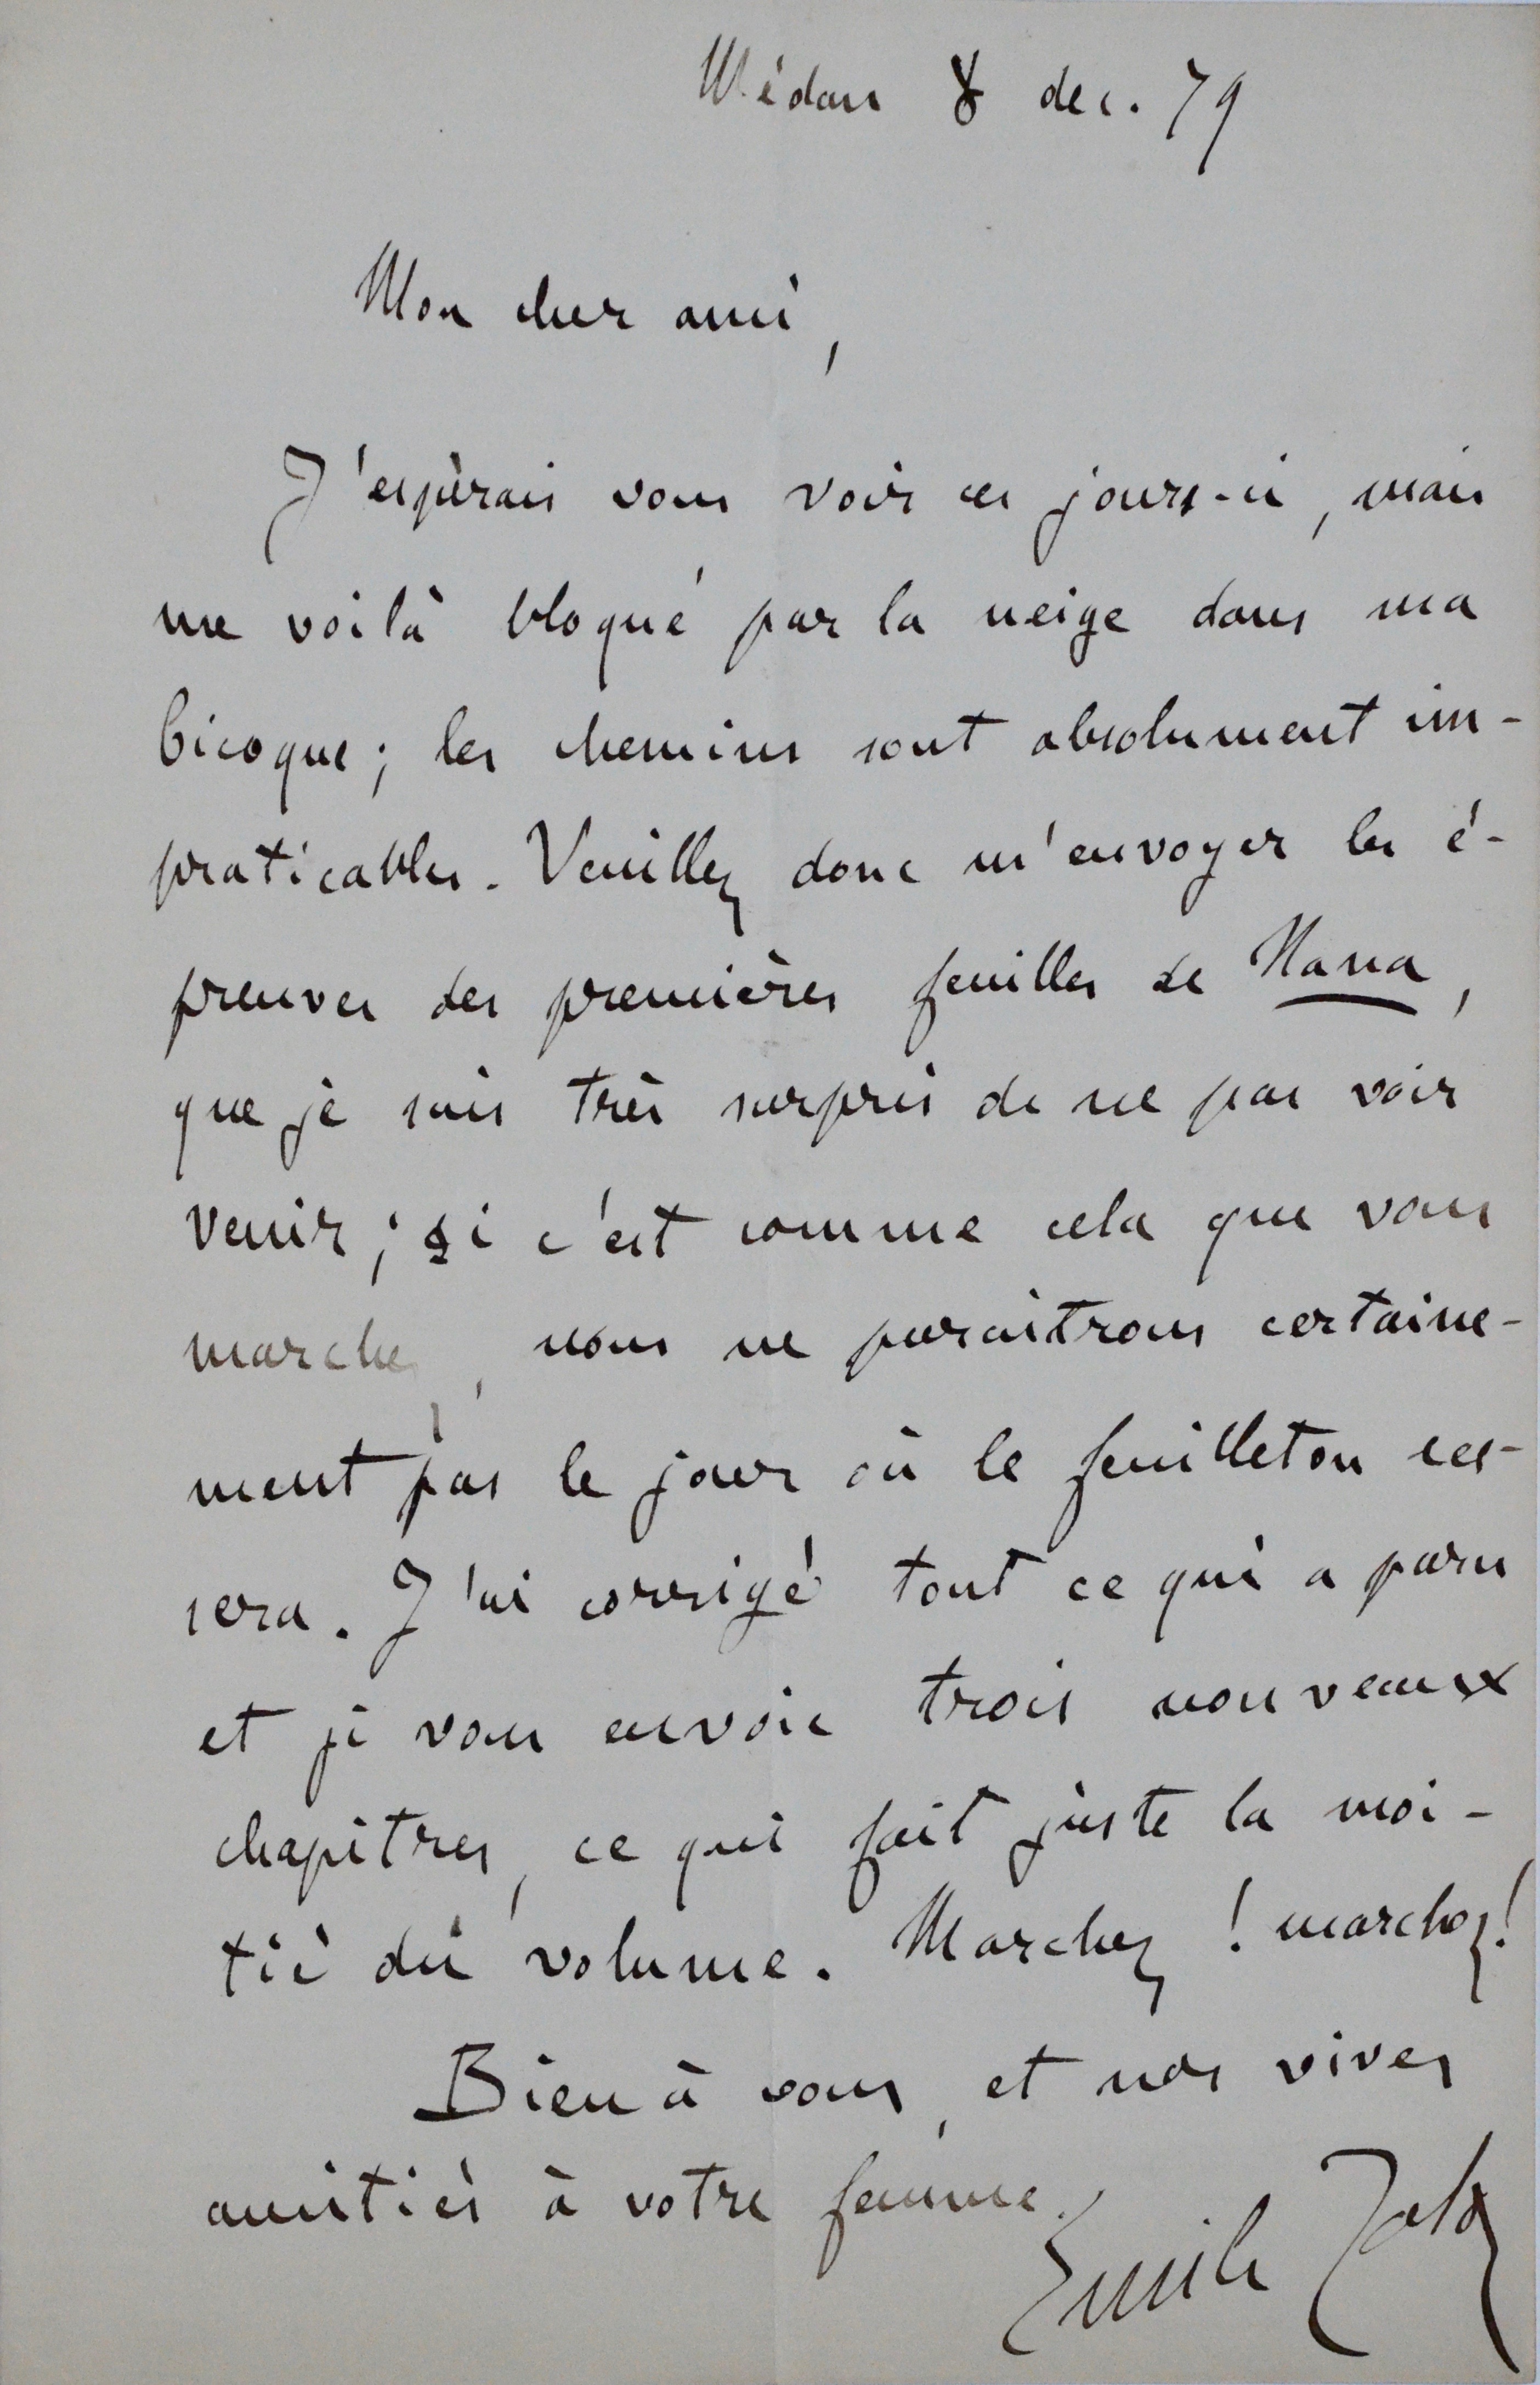 Médan 8 dec. 79
Mon cher ami,
J'espérais vous voir ces jours-ci, mais
me voilà bloqué par la neige dans ma
bicoque; les chemins sont absolument im-
praticables. Veuillez donc m'envoyer les é-
preuves des premières feuilles de Nana,
que je suis très surpris de ne pas voir
venir; si c'est comme cela que vous
marchez, nous ne paraitrons certaine-
ment pas le jour où le feuilleton ces-
sera. J'ai corrigé tout ce qui a paru
et je vous envoie trois nouveaux
chapitres, ce qui fait juste la moi-
tié du volume. Marchez! marchez!
Bien à vous, et nos vives
amitiés à votre femme.
Emile Zola